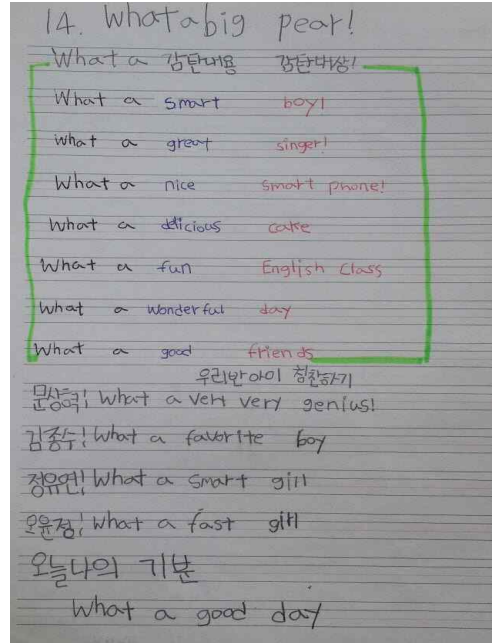 14. What a big pear!
What a 감탄내용 감탄대상!
What a smart boy!
What a great singer!
What a nice smart phone!
What a delicious cake
What a fun English Class
What a wonderful day
What a good friends
우리반아이 칭찬하기
문상혁! What a very very genius!
김종수! What a favorite boy
정유연! What a smart girl
오윤정! What a fast girl
오늘나의 기분
What a good day